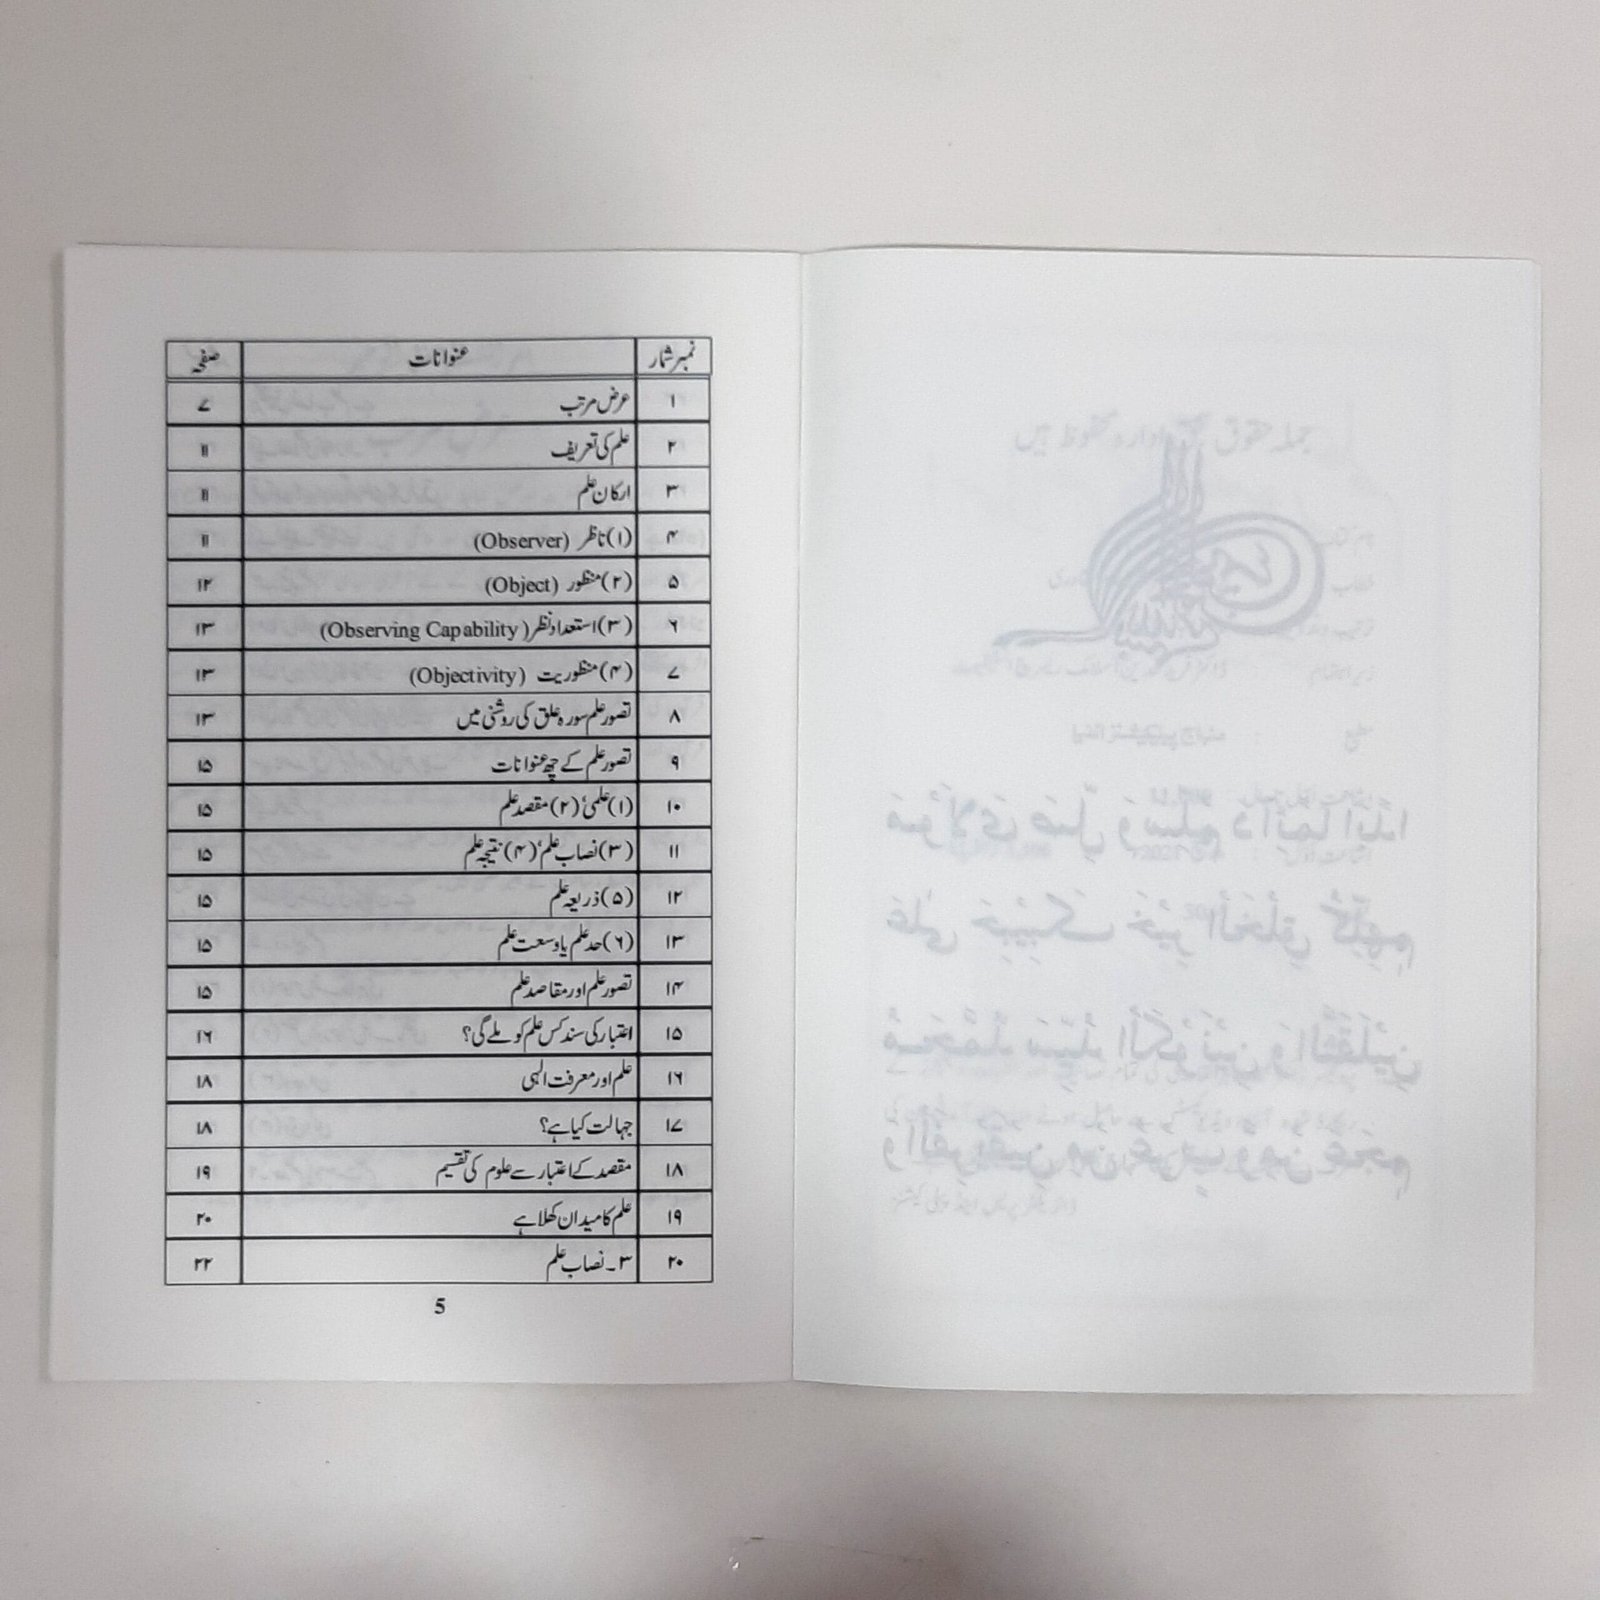 نمبر شمار عنوانات صفحہ
۱ عرض مرتب ۷
۲ علم کی تعریف ۱۱
۳ ارکان علم ۱۱
۴ (۱) ناظر (Observer) ۱۱
۵ (۲) منظور (Object) ۱۲
۶ (۳) استعداد نظر (Observing Capability) ۱۳
۷ (۴) منظوریت (Objectivity) ۱۳
۸ تصور علم سورہ علق کی روشنی میں ۱۳
۹ تصور علم کے چھ عنوانات ۱۵
۱۰ (۱) علمی‘ (۲) مقصد علم ۱۵
۱۱ (۳) نصاب علم‘ (۴) نتیجہ علم ۱۵
۱۲ (۵) ذریعہ علم ۱۵
۱۳ (۶) حد علم یا وسعت علم ۱۵
۱۴ تصور علم اور مقاصد علم ۱۵
۱۵ اعتبار کی سند کس علم کو ملے گی؟ ۱۶
۱۶ علم اور معرفت الہی ۱۸
۱۷ جہالت کیا ہے؟ ۱۸
۱۸ مقصد کے اعتبار سے علوم کی تقسیم ۱۹
۱۹ علم کا میدان کھلا ہے ۲۰
۲۰ ۳۔ نصاب علم ۲۲
5
مَوْلَايَ صَلِّ وَسَلِّمْ دَائِمًا اَبَدًا
عَلٰى حَبِيْبِكَ خَيْرِ الْخَلْقِ كُلِّهِمِ
مُحَمَّدٌ سَيِّدُ الْكَوْنَيْنِ وَالثَّقَلَيْنِ
وَالْفَرِيْقَيْنِ مِنْ عُرْبٍ وَّمِنْ عَجَمِ